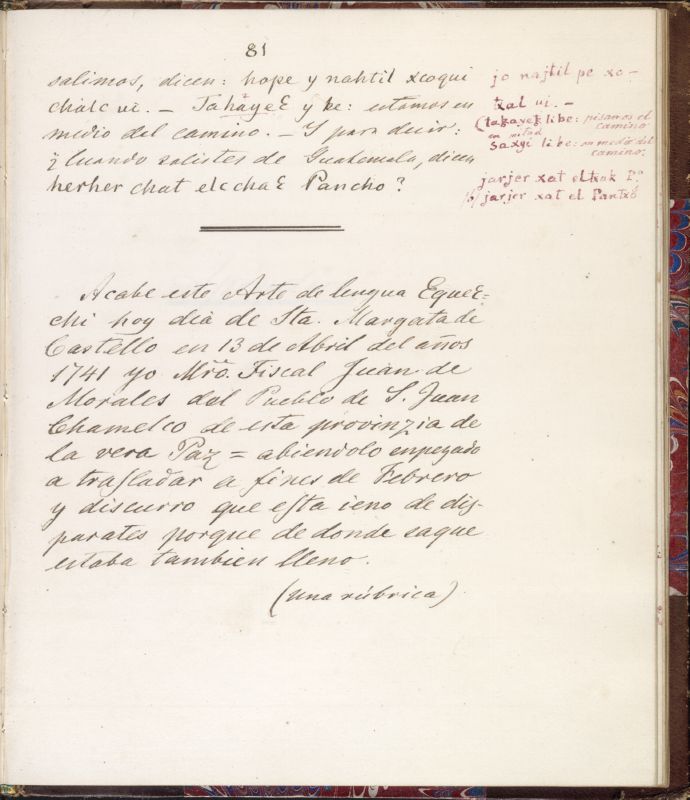 81
salimos, dicen: hope y nahtil xcoqui
chalc ui. – Tahàyeξ y be: estamos en
medio del camino. – Y para decir:
¿Cuando salistes de Guatemala, dicen
herher chat elcchaξ Pancho?
jo najtil pe xo-
txal ui. –
(takayek li be: pisanos el
camino
en mitad
saxyi li be: en medio del
camino:
jarjer xat eltxak P.º
jarjer xat el Pantxo
Acabe este Arte de lengua Equeξ=
chi hoy dia de Sta. Margarita de
Castello en 13 de Abril del años
1741 yo Mrõ. Fiscal Juan de
Morales del Pueblo de S. Juan
Chamelco de esta provinzia de
la vera Paz = abiendolo enpezado
a trasladar a fines de Febrero
y discurro que esta ieno de dis-
parates porque de donde saque
estaba tambien lleno.
(una rúbrica)